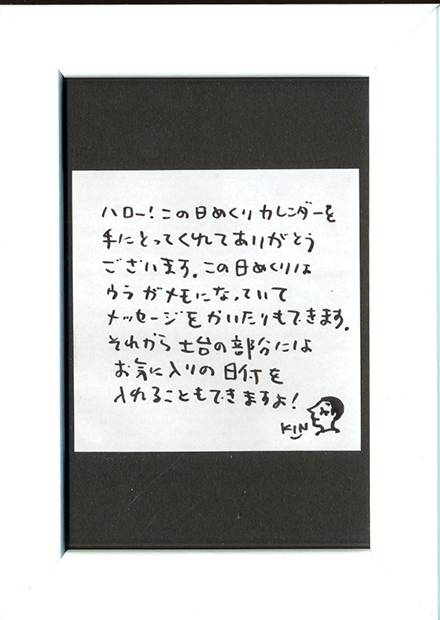 ハロー!この日めくりカレンダーを
手にとってくれてありがとう
ございます。この日めくりは
ウラがメモになっていて
メッセージをかいたりもできます。
それから土台の部分には
お気に入りの日付を
入れることもできますよ!
KIN